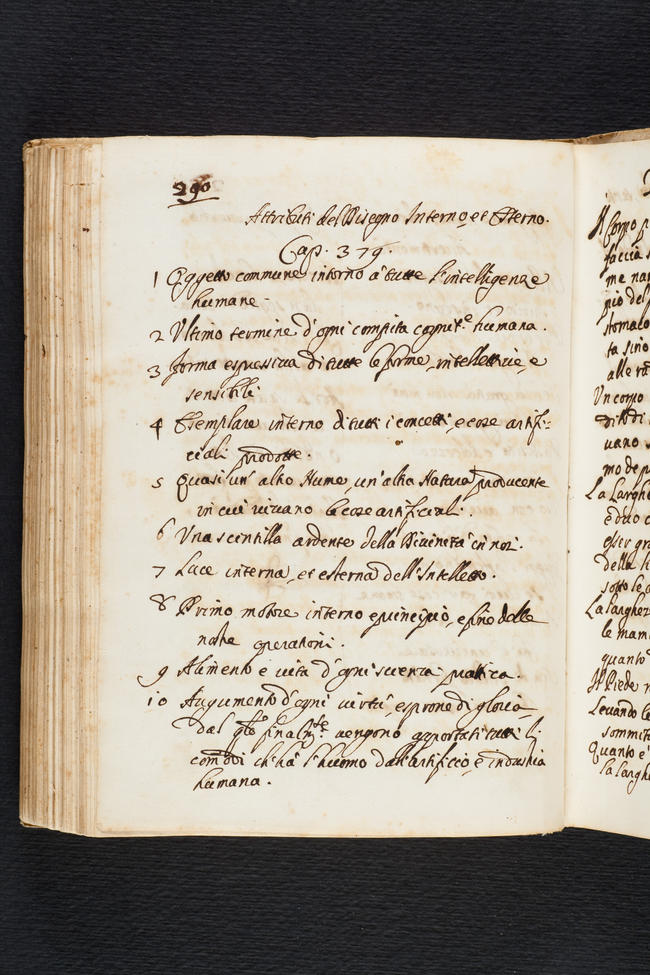 290
Attributi del Disegno Interno, et Esterno.
Cap. 379.
1 Oggetto commune intorno à tutte l'intelligenze
humane.
2 Ultimo termine d'ogni compita cognit.e humana.
3 Forma espressiva di tutte le forme intellettive, e
sensibili.
4 Esemplare interno di tutti i concetti, e cose artifi-
ciali prodotte.
5 Quasi un' altro Nume, un' altra Natura producente
in cui vivano le cose artificiali.
6 Una scintilla ardente della Divinità in noi.
7 Luce interna, et esterna dell'Intelletto.
8 Primo motore interno e principio, e fine delle
nostre operationi.
9 Alimento e vita d'ogni scienza pratica.
10 Augumento d'ogni virtù, e sprone di gloria,
dal qle finalm.te vengono apportati tutti li
comodi ch'hà l'huomo dall'artificio, e industria
humana.
Il Corpo
faccia
me
pio del
stomaco
ta sino
alle
Un corpo
diti di
vano
mo de
La Largh
è due
esser
della
sotto le
La larghez
le mam
quanto
Il Piede
Levando le
sommit
Quanto è
la largh